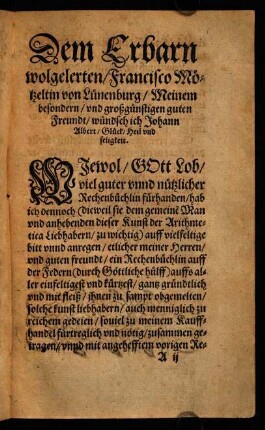 Dem Erbarn
wolgelerten/Francisco Mö-
tzeltin von Lünenburg/Meinem
besondern/vnd großgünstigen guten
Freundt/wündsch ich Johann
Albert/Glück/Heil vnd
seligkeit.
WJewol/GOtt Lob/
viel guter vnnd nützlicher
Rechenbüchlin fürhanden/hab
ich dennoch (dieweil sie dem gemeinē Man
vnd anhebenden dieser Kunst der Arithme-
tica Liebhabern/zu wichtig) auff vielfeltige
bitt vnnd anregen/etlicher meiner Herren/
vnd guten freundt/ein Rechenbüchlin auff
der Federn (durch Göttliche hülff) auffs al-
ler einfeltigest vnd kürtzest/gantz gründtlich
vnd mit fleiß/jhnen zu sampt obgemelten/
solche kunst liebhabern/auch menniglich zu
reichem gedeien/souiel zu meinem Kauff-
handel fürtreglich vnd nötig/zusammen ge-
tragen/vnnd mit angehefftem vorigen Re-
A ij